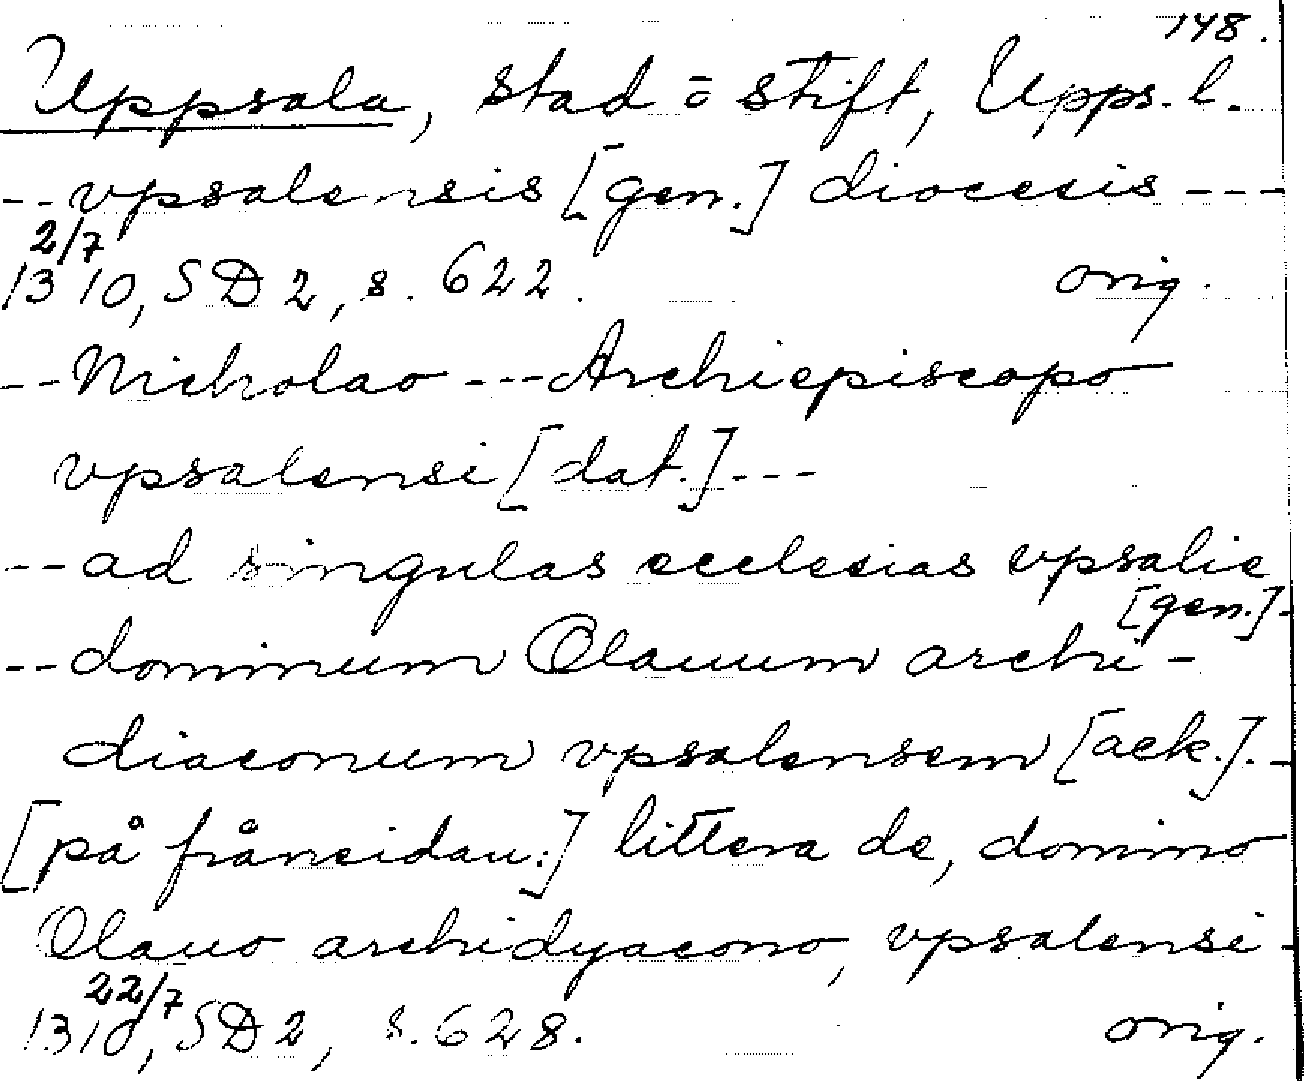 148.
Uppsala, stad o stift, Upps. l.
-- vpsalensis [gen.] diocesis ---
2/7
1310, SD 2, s. 622. orig.
-- Nicholao --- Archiepiscopo
vpsalensi [dat.] ---
-- ad singulas ecclesias vpsalie
[gen.] -
-- dominum Olauum archi-
diaconum vpsalensem [ack.]. -
[på frånsidan:] littera de, domino
Olauo archidyacono, vpsalensi -
22/7
1310, SD 2, s. 628. orig.